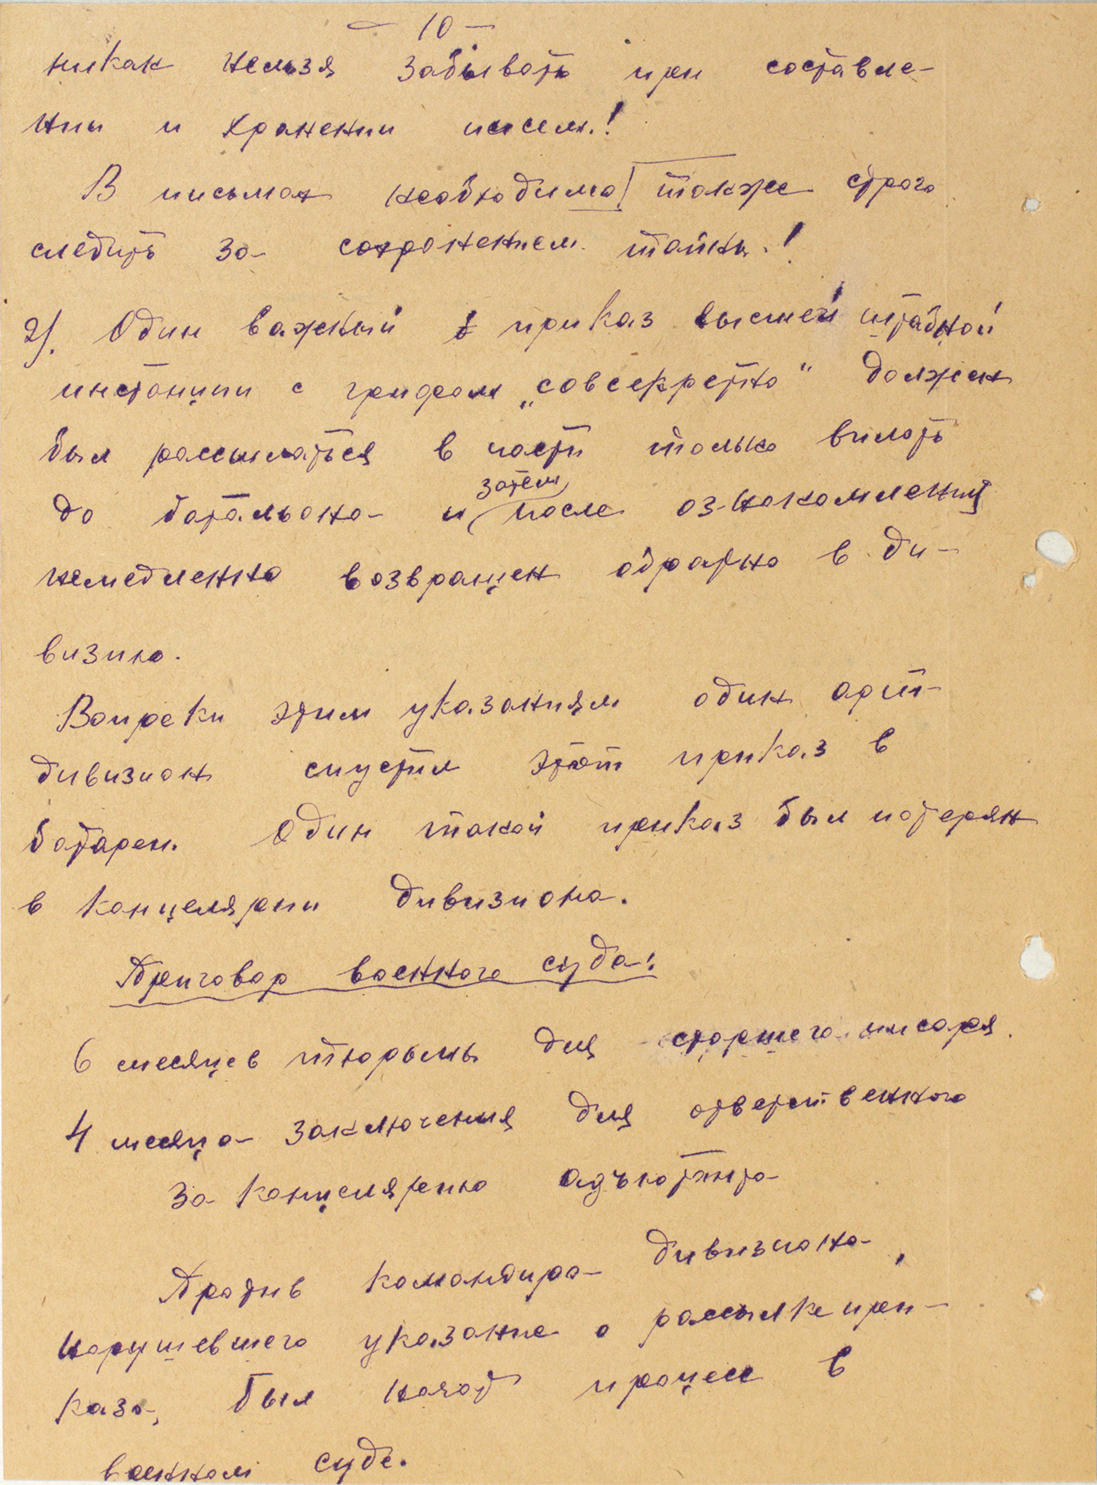 — 10 —
никак нельзя забывать при составле-
нии и хранении писем.!
В письмах необходимо также строго
следить за сохранением тайны.!
2). Один важный приказ высшей штабной
инстанции с грифом „совсекретно" должен
был рассылаться в части только вплоть
затем
до батальона и после ознакомления
немедленно возвращен обратно в ди-
визию.
Вопреки этим указаниям один арт-
дивизион спустил этот приказ в
батареи. Один такой приказ был потерян
в канцелярии дивизиона.
Приговор военного суда:
6 месяцев тюрьмы для старшего писаря.
4 месяца заключения для ответственного
за канцелярию адъютанта
Против командира дивизиона,
нарушевшего указание о рассылке при-
каза, был начат процесс в
военном суде.